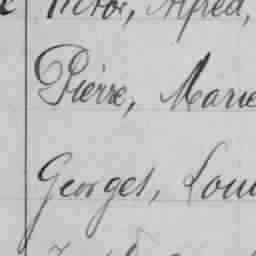 Victor, Alfred,
Pierre, Marie
Georges, Loui